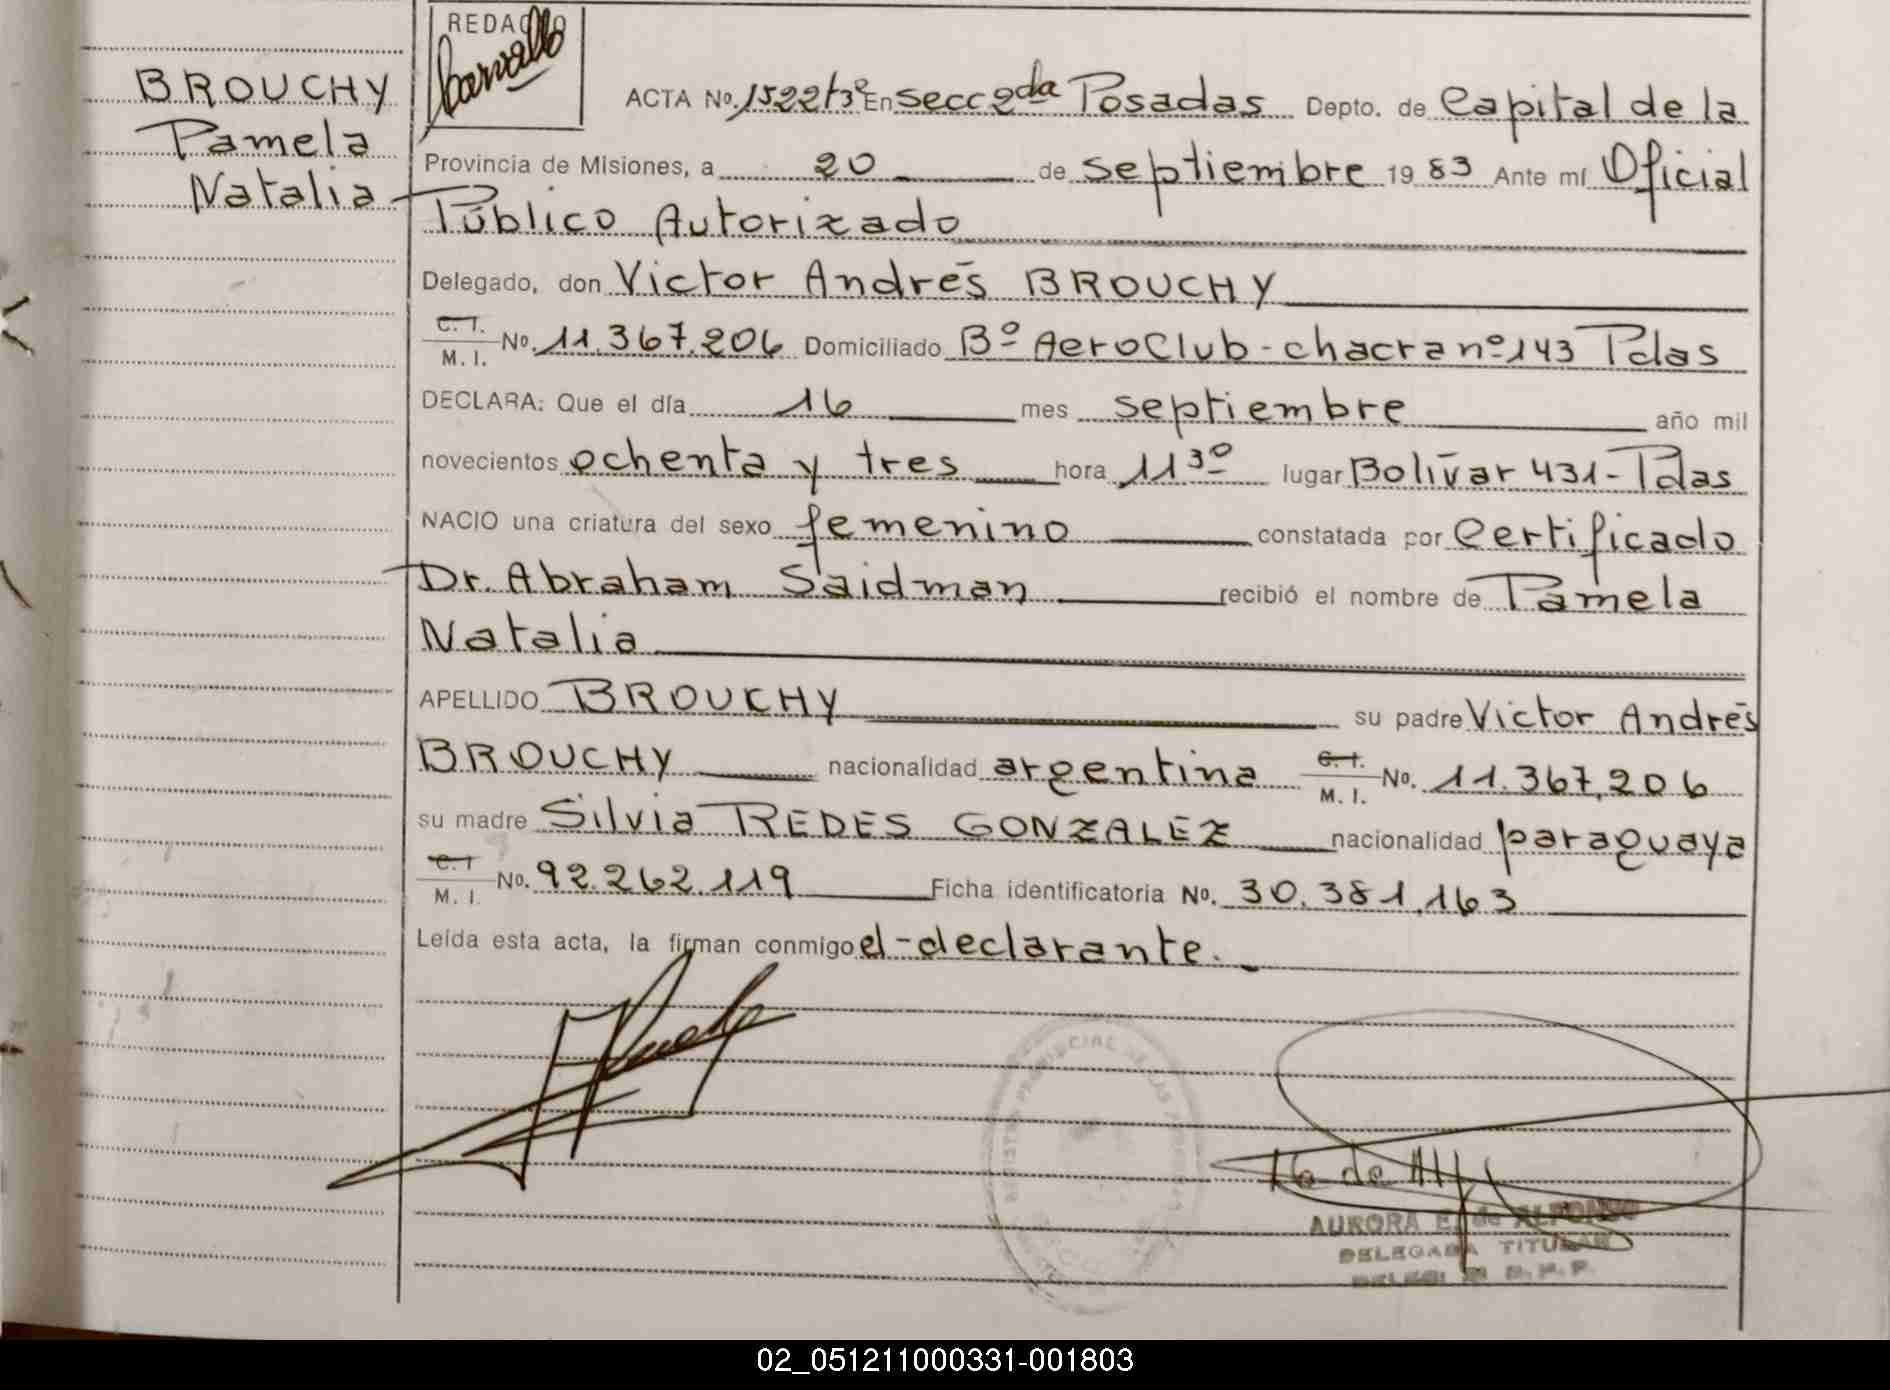 BROUCHY
Pamela
Natalia
REDACTO
ACTA No. 1522 t3º En secc 2da Posadas Depto. de Capital de la
Provincia de Misiones, a 20 de septiembre 1983 Ante mí Oficial
Público Autorizado
Delegado, don Victor Andrés BROUCHY
C. I. M. I. No. 11.367.206 Domiciliado Bº AeroClub - chacra nº 143 Pdas
DECLARA: Que el día 16 mes septiembre año mil
novecientos ochenta y tres hora 11 30 lugar Bolívar 431 - Pdas
NACIO una criatura del sexo femenino constatada por Certificado
Dr. Abraham Saidman recibió el nombre de Pamela
Natalia
APELLIDO BROUCHY su padre Victor Andrés
BROUCHY nacionalidad argentina C. I. M. I. No. 11.367.206
su madre Silvia REDES GONZALEZ nacionalidad paraguaya
C. I M. I. No. 92.262.119 Ficha identificatoria No. 30.381.163
Leída esta acta, la firman conmigo el-declarante.
AURORA E. de ALFONSO
DELEGADA TITULAR
02_051211000331-001803